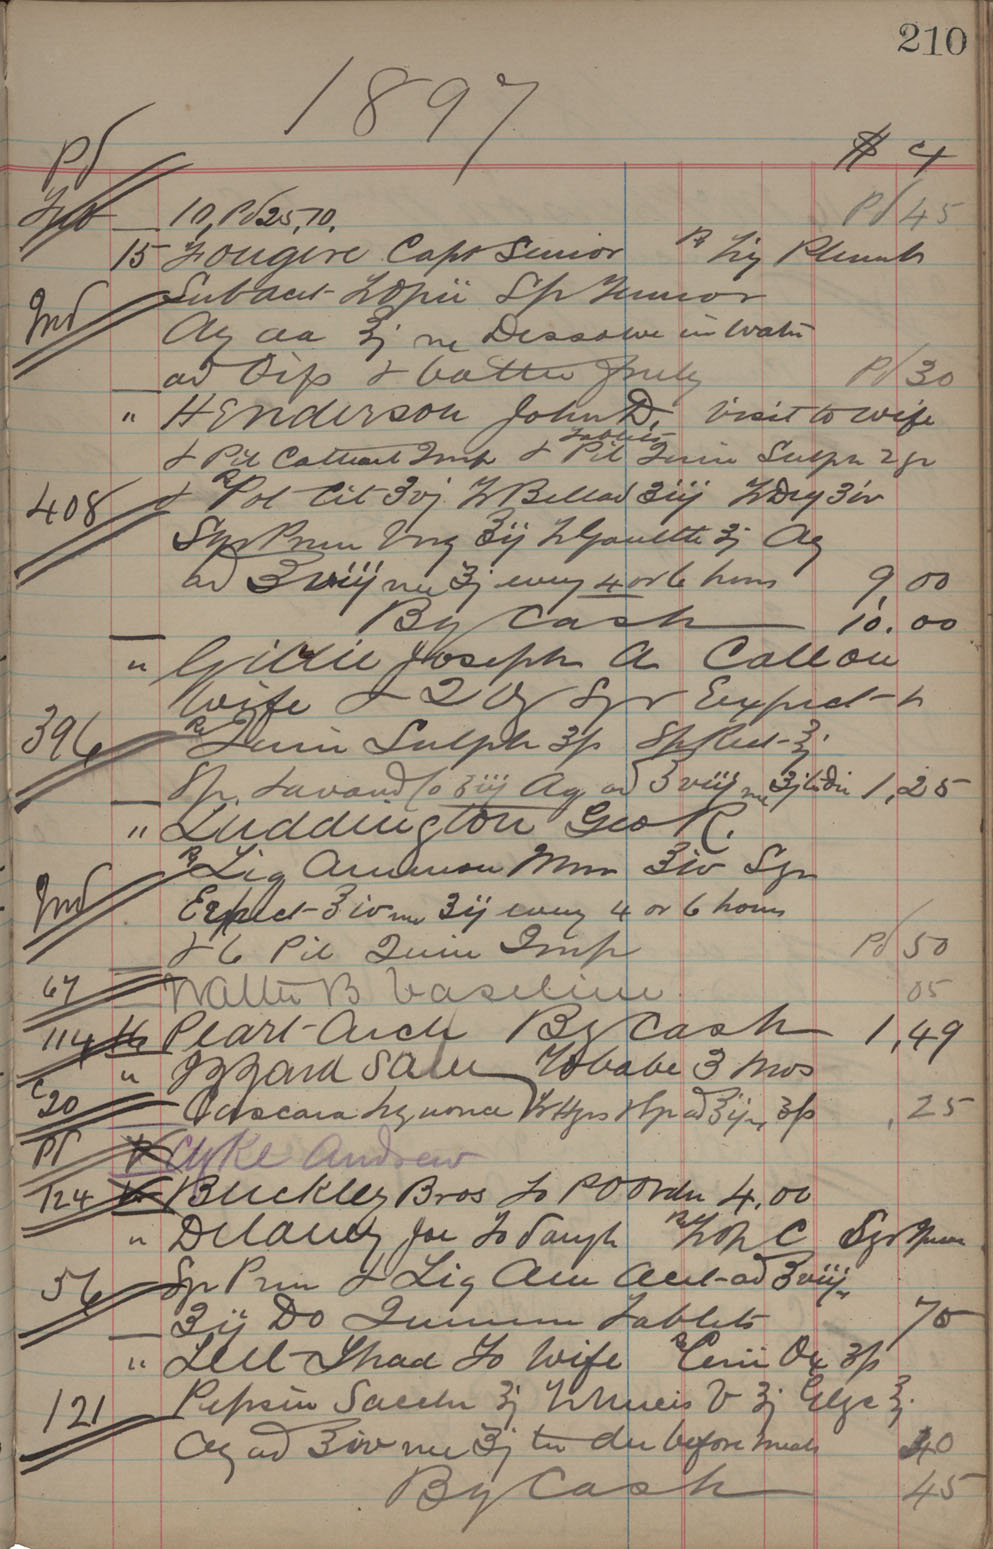 210
1897
Pd $ ct
Feb 10, Pd 25, 70. Pd 45
15 Fougere Capt Senior ℞ Liq Plumb
Subacet T Opii Sp
Ind Aq aa ʒj m Dissolve in Water
ad Oip & bathe freely Pd 30
" Henderson John D. Visit to wife
& Pil Cathart Imp & Pil Tablets Quin Sulph 2 gr
408 & ℞ Pot Cit ʒvj T Bellad ʒiij T Dig ʒiv
Syr Prun Virg ʒij Gaulth ʒj Aq
ad ʒviij m ʒj every 4 or 6 hours 9,00
By Cash 10.00
" Gillie Joseph A Call on
wife & 2 Oz Syr Expect
396 ℞ Quin Sulph ʒfs Sp Rect ʒj
Sp Lavand Co ʒiij Aq ad ʒviij m ʒj 1,25
" Luddington Geo R.
℞ Liq Ammon Mur ʒiv Syr
Ind Expect ʒiv m ʒij every 4 or 6 hours
& 6 Pil Quin Imp Pd 50
67 Walter B Vaseline 05
114 16 Peart Arch By Cash 1,49
" Izzard Saml To babe 3 mos
C20 Cascara ,25
Pd Dyke Andrew
124 Buckley Bros To P O Order 4.00
" Delaney Joe To Daugh ℞ C Syr
56 Sp Prun & Liq Am Acet ad ʒviij
ʒij Do Quinine Tablets 75
" Lelt Thad To Wife ℞ Cerii Ox ʒfs
121 Pepsin Sacch ʒj T Nucis V ʒj Glyc ʒj
Aq ad ʒiv m ʒj before meals 40
By Cash 45